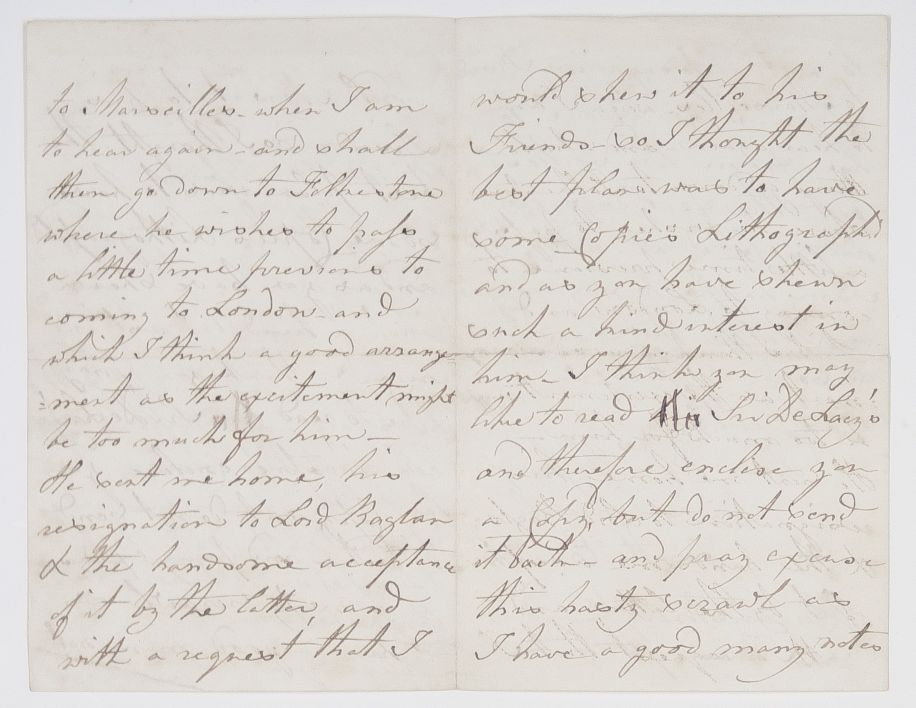 to Marseilles - when I am
to hear again - and shall
then go down to Folkestone
where he wishes to pass
a little time previous to
coming to London - and
which I think a good arrange-
=ment as the excitement might
be too much for him -
He sent me home, his
resignation to Lord Raglan
& the handsome acceptance
of it by the latter, and
with a request that I
would shew it to his
Friends - so I thought the
best plan was to have
some Copies Lithograph'd
and as you have shewn
such a kind interest in
him - I think you may
like to read Sir De Lacy's
and therefore enclose you
a Copy, but do not send
it back - and pray excuse
this hasty scrawl as
I have a good many notes